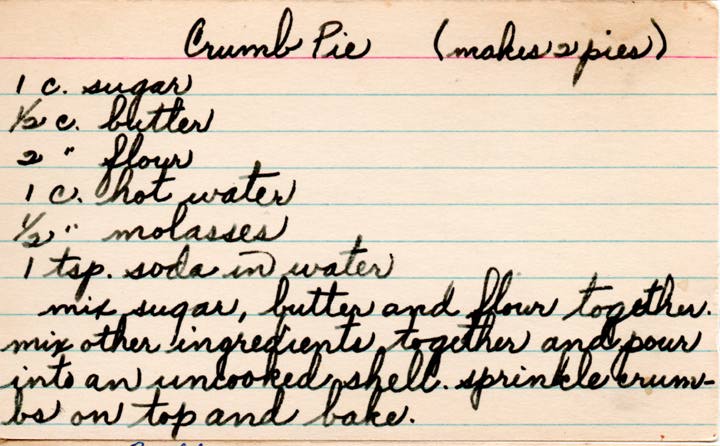 Crumb Pie (makes 2 pies)
1 c. sugar
1/2 c. butter
2 " flour
1 c. hot water
1/2 " molasses
1 tsp. soda in water
mix sugar, butter and flour together.
mix other ingredients together and pour
into an uncooked shell. sprinkle crum-
bs on top and bake.